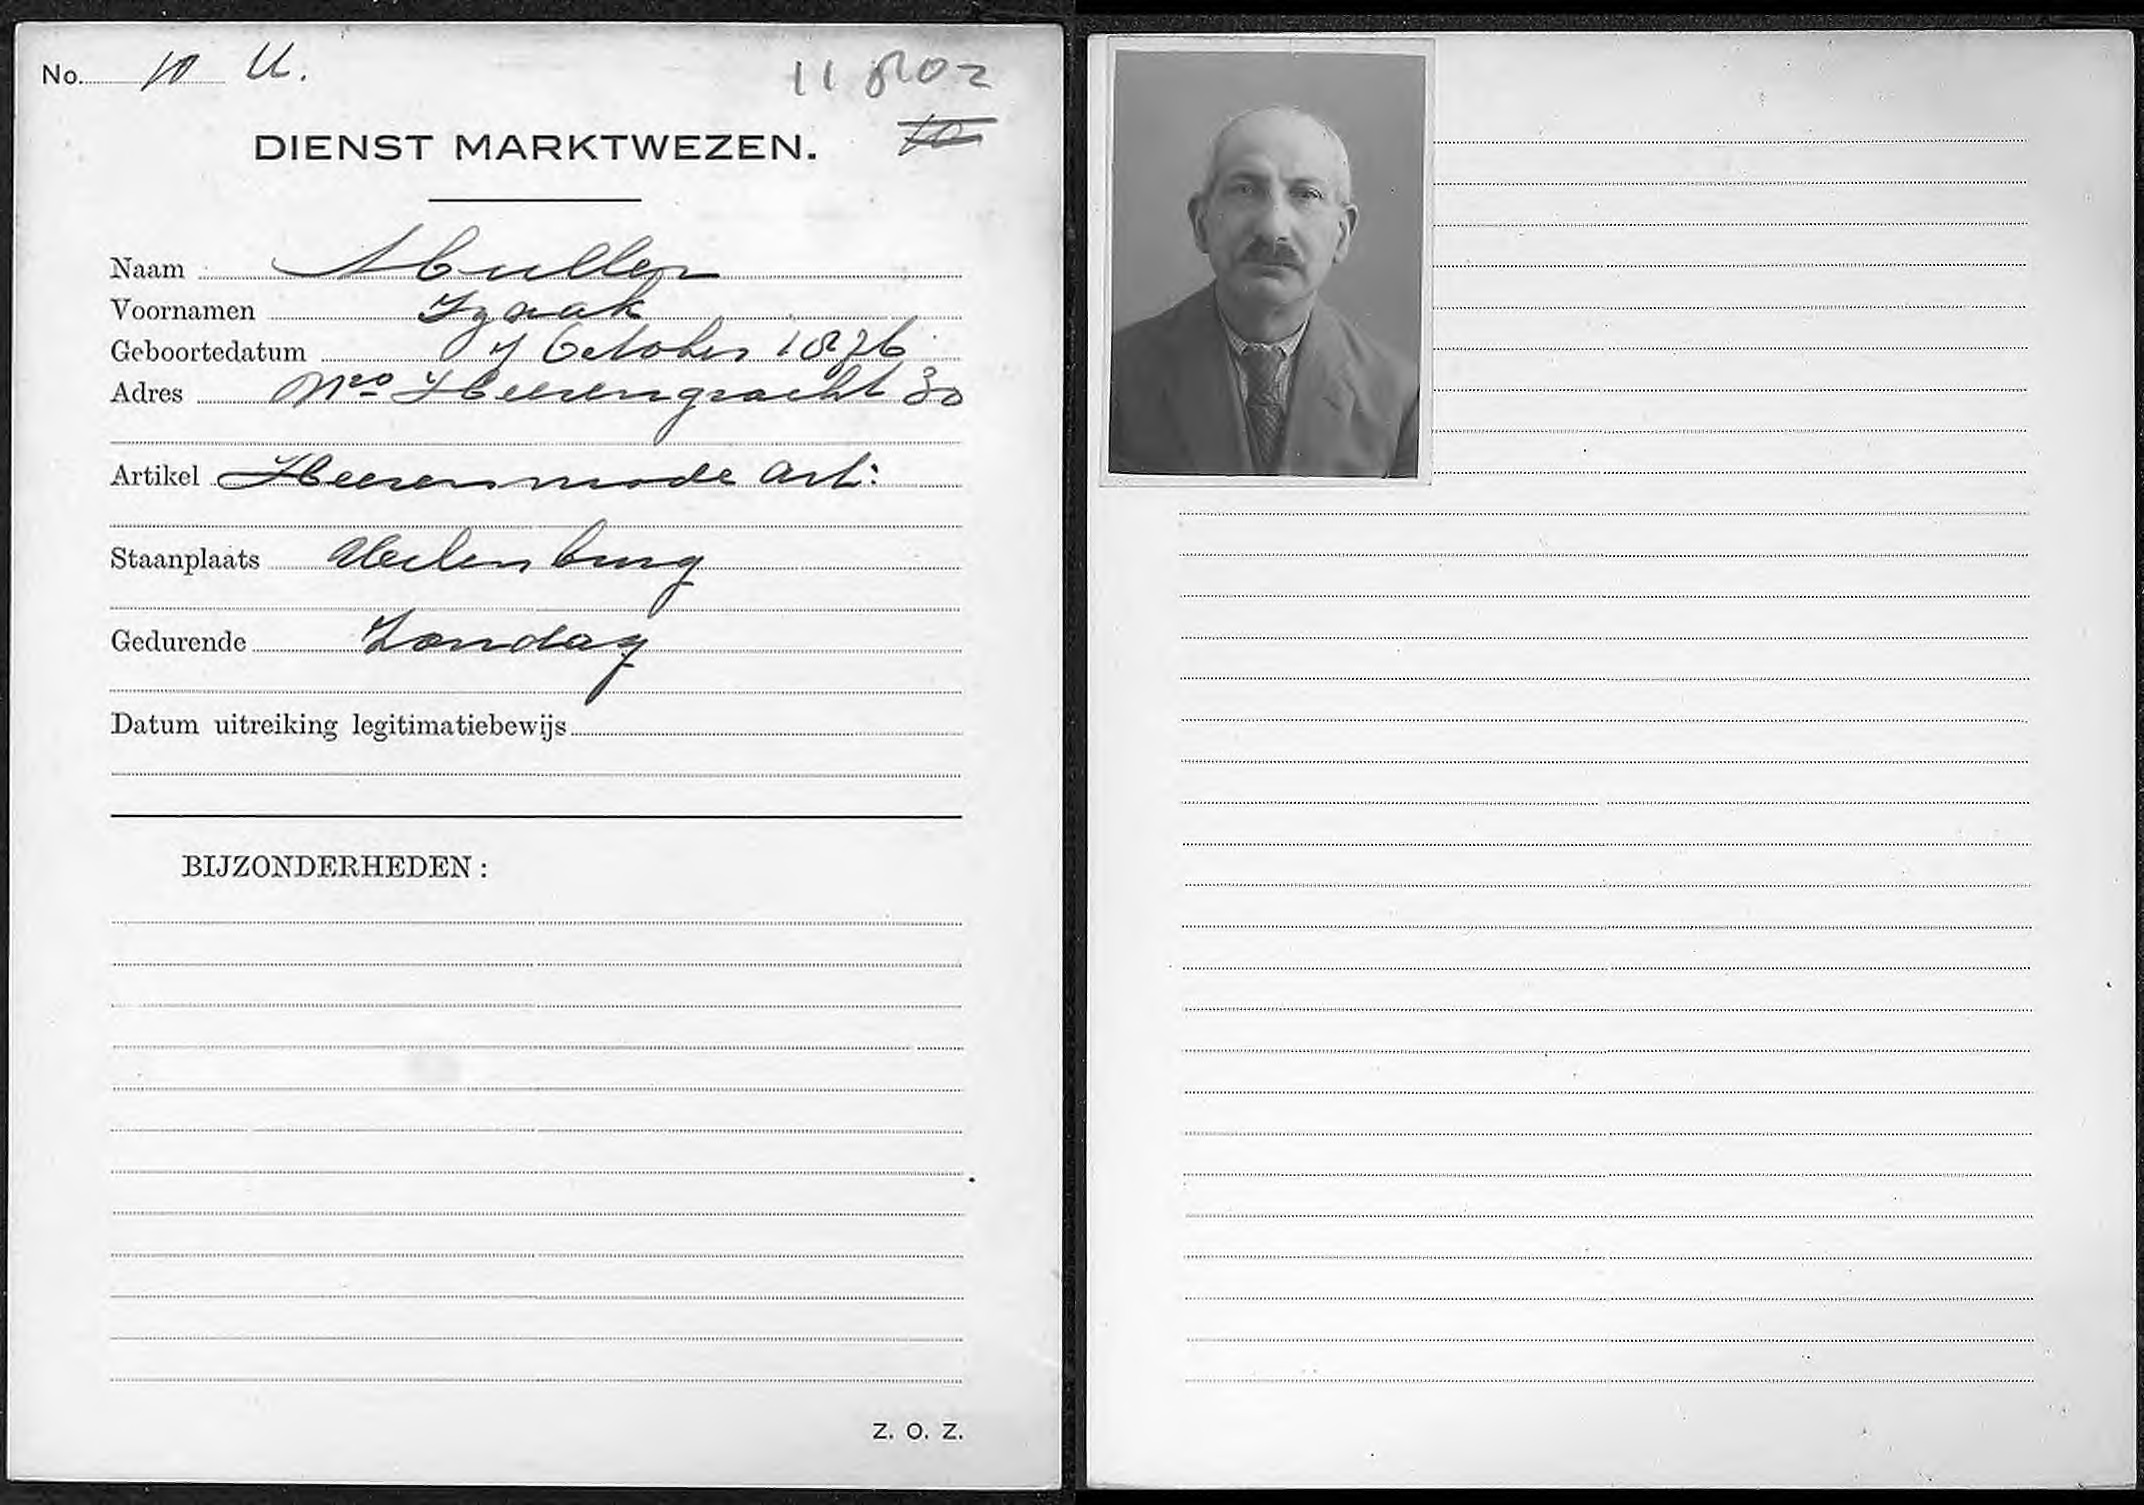 No. 10 U.
11802
10
DIENST MARKTWEZEN.
Naam Muller
Voornamen Izaak
Geboortedatum 7 October 1876
Adres Heerengracht 30
Artikel Heerenmode art:
Staanplaats Uilenburg
Gedurende Zondag
Datum uitreiking legitimatiebewijs
BIJZONDERHEDEN :
Z. O. Z.